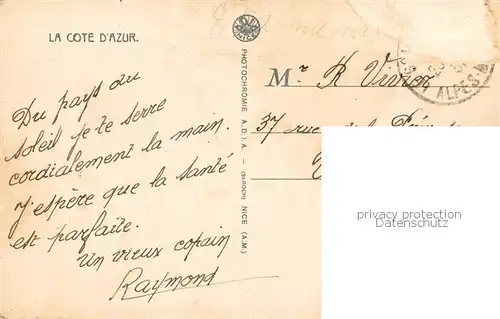 LA COTE D'AZUR.
Du pays du
soleil je te serre
cordialement la main.
J'espère que la santé
est parfaite.
Un vieux copain
Raymond
PHOTOCHROMIE A.D.I.A. — (St-ROCH) NICE (A.M.)
Mr R
37 rue de la
ALPES M
privacy protection
Datenschutz